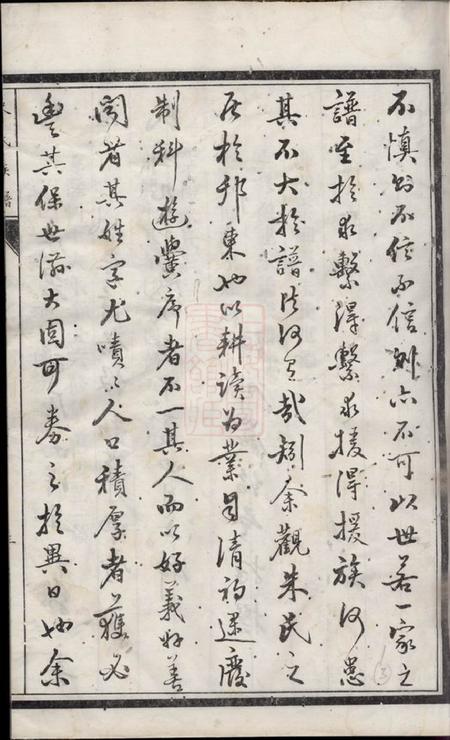 不慎則不信不信則亦不可以世若一家之
譜至於求繫得繫求援得援族何患
其不大於譜牒何有哉矧余觀朱氏之
居於邗東也以耕讀為業自清初遞廢
制科遊黌序者不一其人而以好義好善
聞者其姓字尤嘖嘖人口積厚者獲必
豐其保世滋大固可券之於異日也余